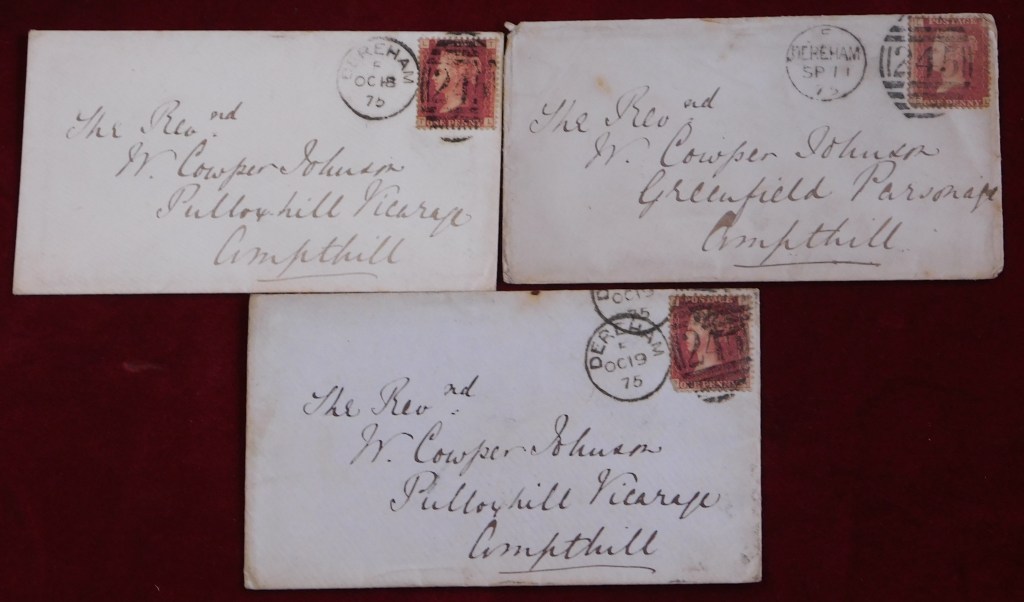 DEREHAM
OC 18
75
ONE PENNY
The Revnd
W. Cowper Johnson
Pulloxhill Vicarage
Ampthill
DEREHAM
SP 11
75
POSTAGE
245
ONE PENNY
The Revnd
W. Cowper Johnson
Greenfield Parsonage
Ampthill
OC 19
75
DEREHAM
OC 19
75
POSTAGE
ONE PENNY
The Revnd
W. Cowper Johnson
Pulloxhill Vicarage
Ampthill